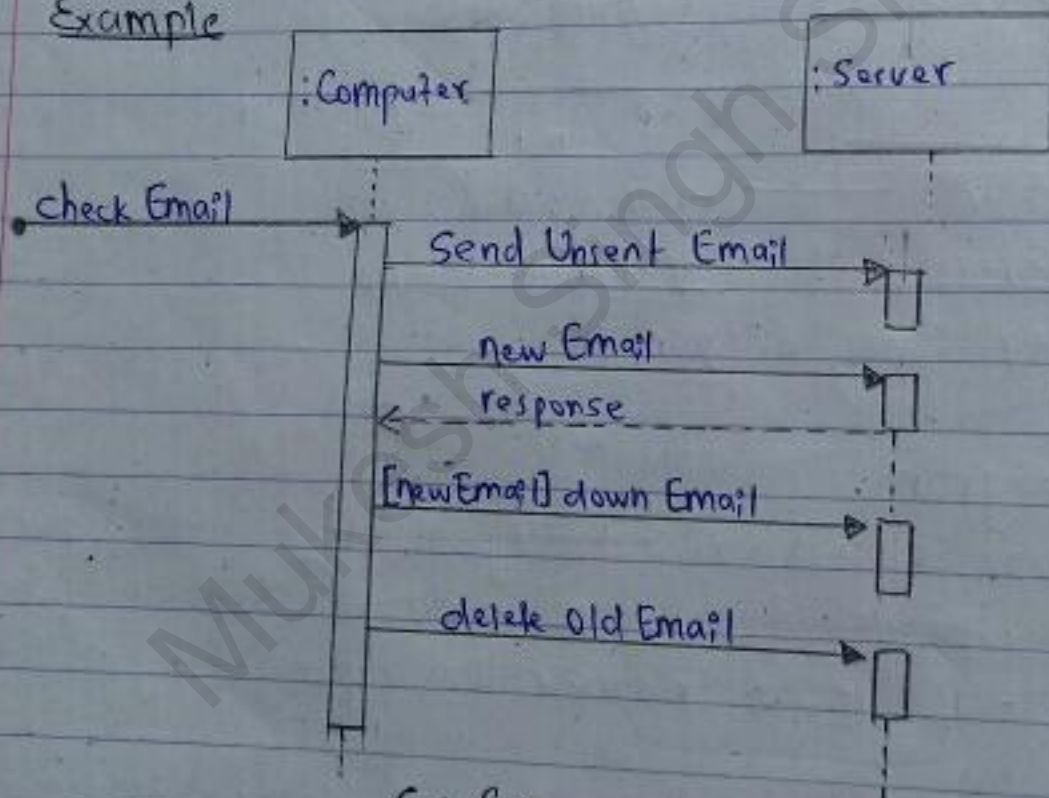 Example
:Computer
:Server
check Email
Send Unsent Email
new Email
response
[newEmail] down Email
delete old Email
Mukesh Singh